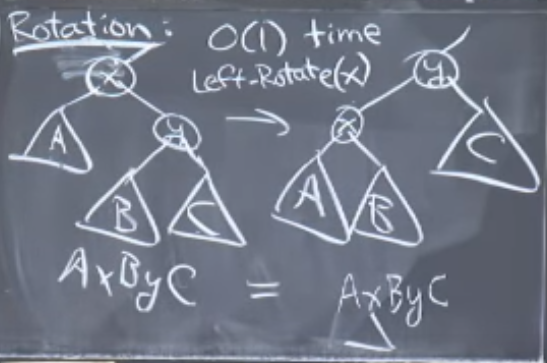 Rotation: O(1) time
Left-Rotate(x)
x y
A y x C
B C A B
AxByC = AxByC